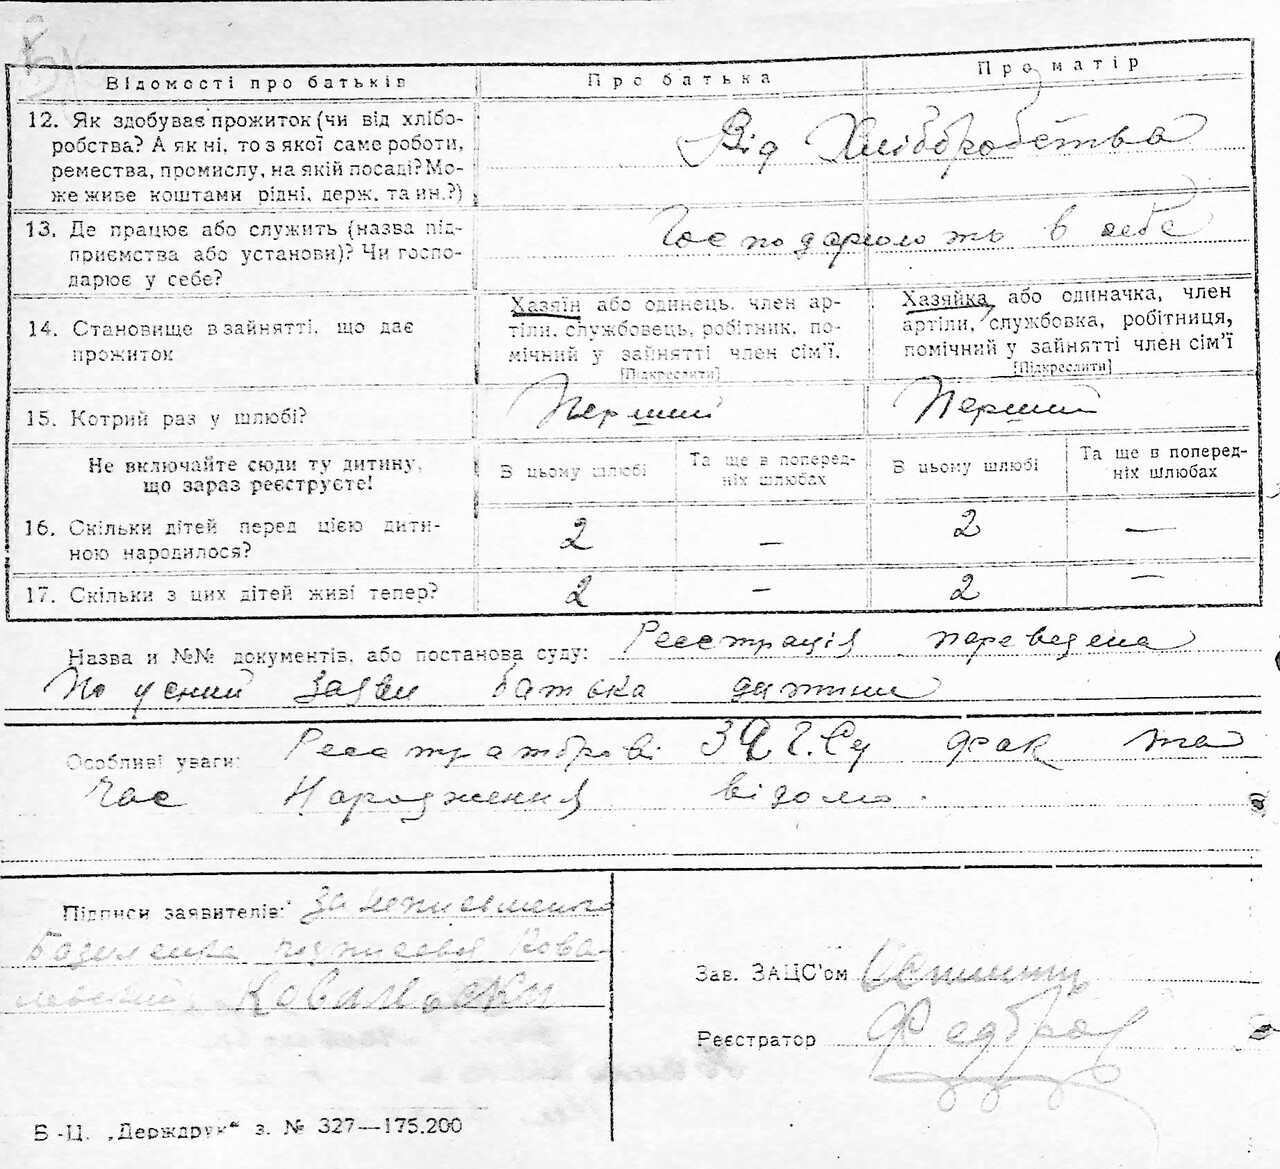 Відомості про батьків
Про батька
Про матір
12. Як здобуває прожиток (чи від хлібо-
робства? А як ні, то з якої саме роботи,
ремества, промислу, на якій посаді? Мо-
же живе коштами рідні, держ. та ин.?)
Від Хліборобства
13. Де працює або служить (назва під-
приємства або установи)? Чи госпо-
дарює у себе?
Господарюють в себе
14. Становище в зайнятті, що дає
прожиток
Хазяїн або одинець, член ар-
тіли, службовець, робітник, по-
мічний у зайнятті член сім'ї.
[Підкреслити]
Хазяйка, або одиначка, член
артіли, службовка, робітниця,
помічний у зайнятті член сім'ї
[Підкреслити]
15. Котрий раз у шлюбі?
Перший
Перший
Не включайте сюди ту дитину,
що зараз реєструєте!
В цьому шлюбі
Та ще в поперед-
ніх шлюбах
В цьому шлюбі
Та ще в поперед-
ніх шлюбах
16. Скільки дітей перед цією дити-
ною народилося?
2 — 2 —
17. Скільки з цих дітей живі тепер?
2 — 2 —
Назва и №№ документів, або постанова суду: Реєстрація переведена
По усний заяви батька дитини
Особливі уваги: Реєстраторові ЗАГСу факт та
час Народження відомо.
Підписи заявителів: За неписьменного
підписався Кова-
левский. Ковальски
Зав. ЗАЦС'ом
Реєстратор
Б.-Ц. „Держдрук“ з. № 327—175.200